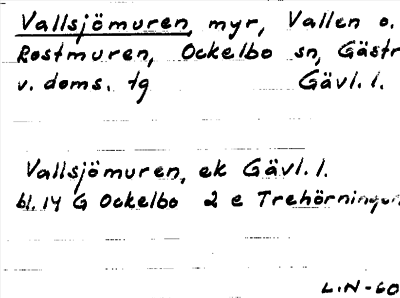 Vallsjömuren, myr, Vallen o.
Rostmuren, Ockelbo sn, Gästr
v. doms. tg Gävl. l.
Vallsjömuren, ek Gävl. l.
bl. 14 G Ockelbo 2 e Trehörningen
L.N-60